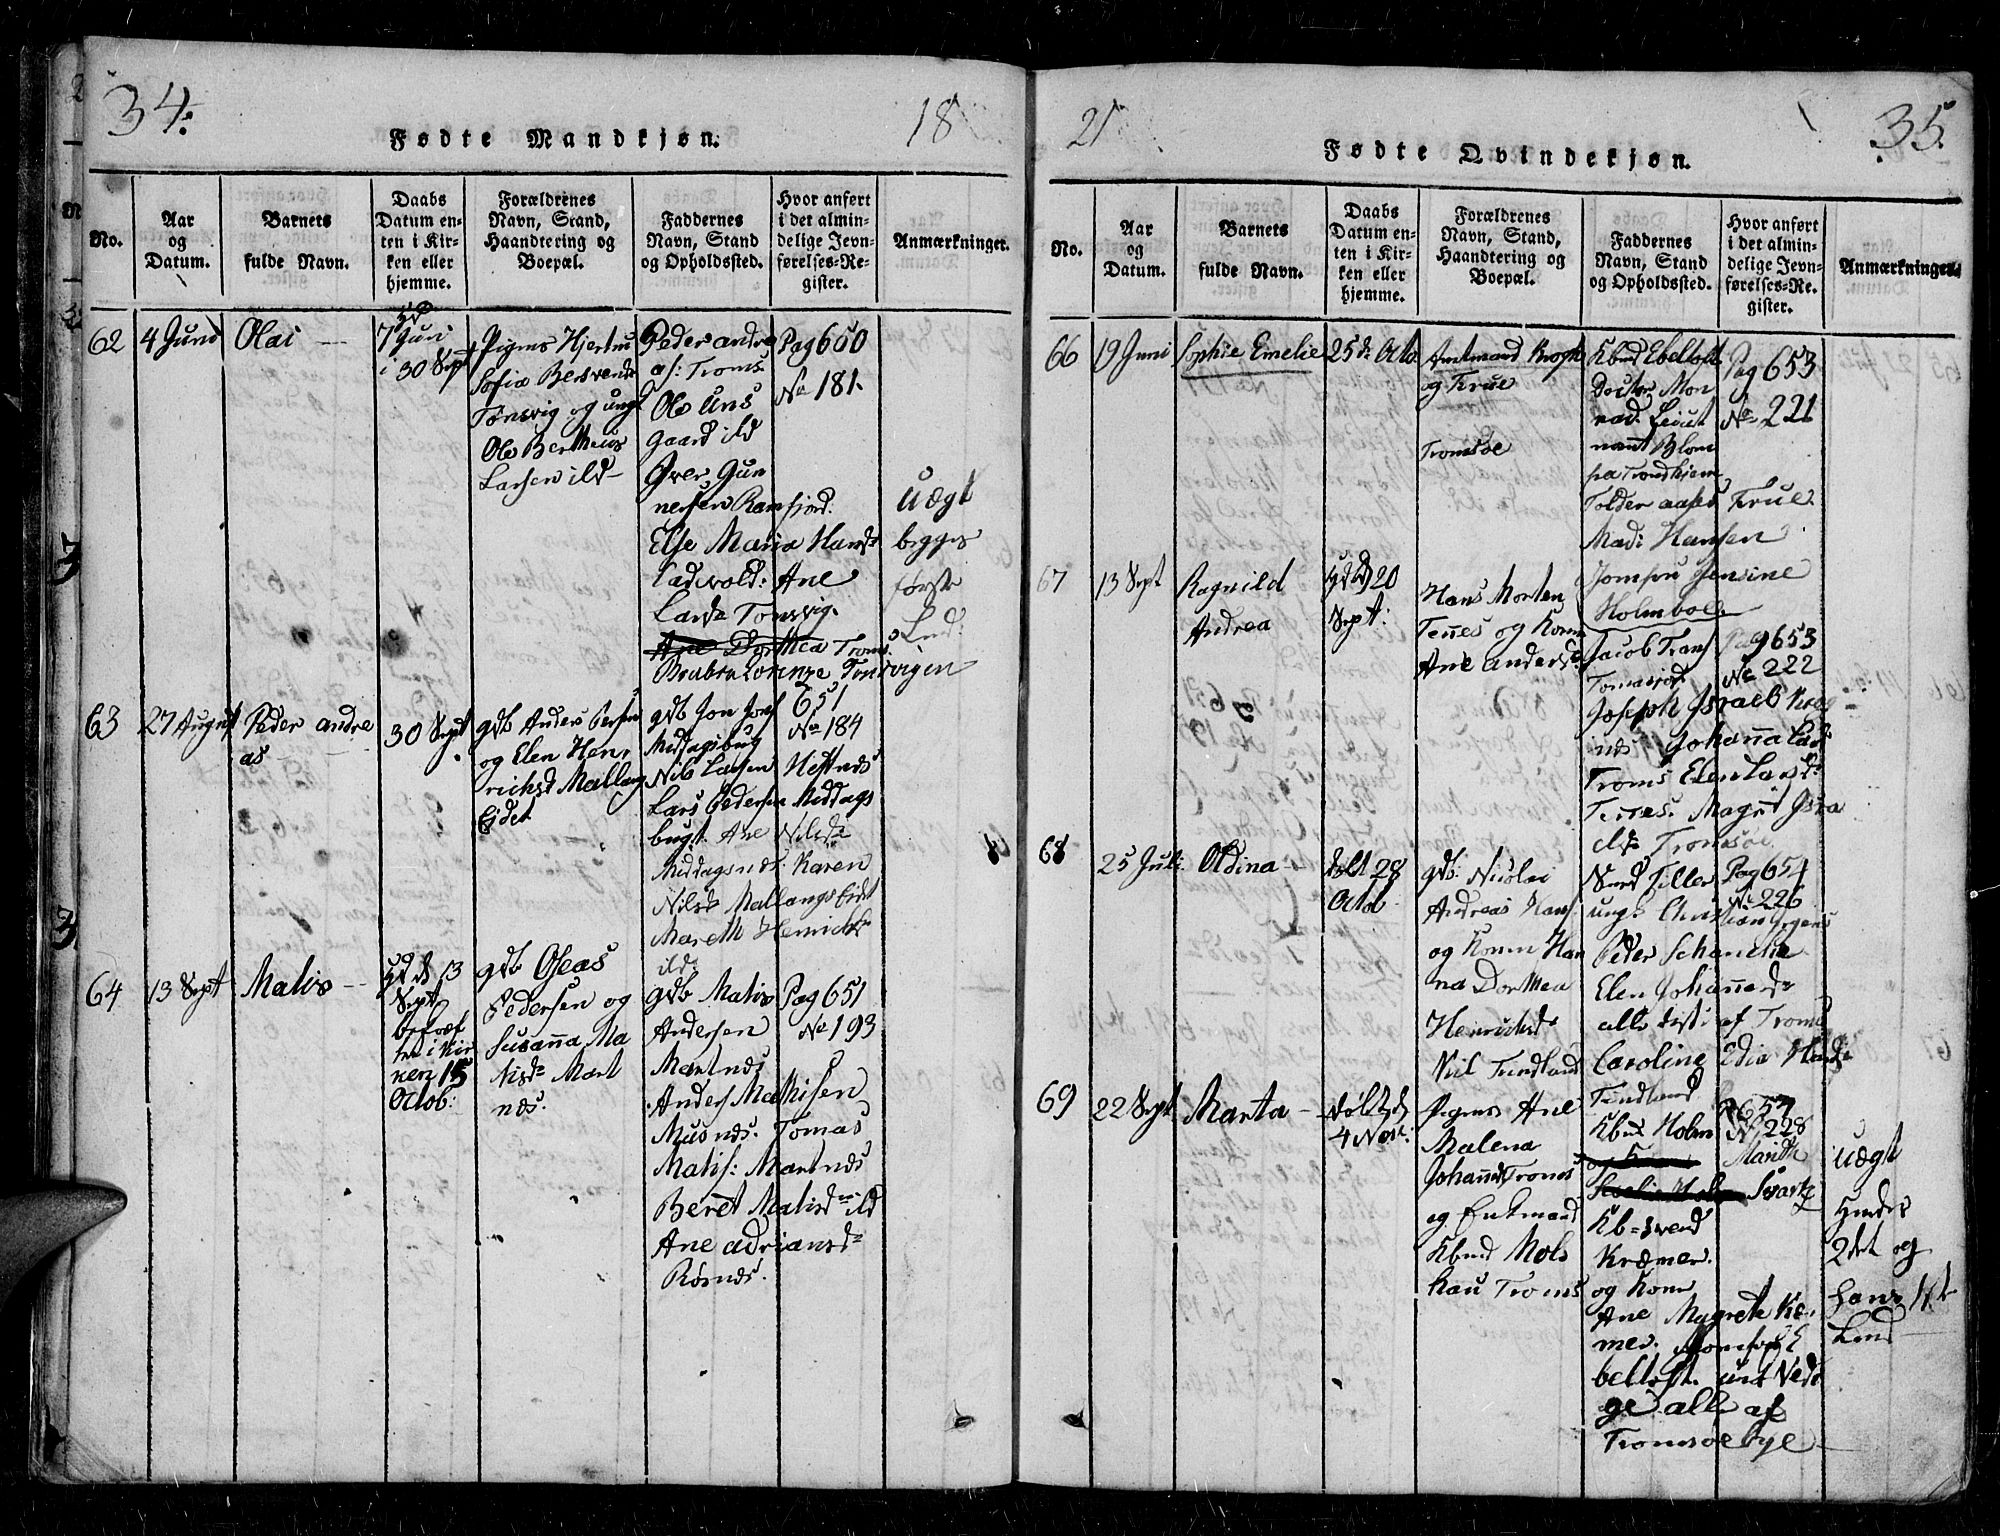 34.
18
Fødte Mandkjøn.
No.
Aar og Datum.
Barnets fulde Navn.
Daabs Datum enten i Kirken eller hjemme.
Forældrenes Navn, Stand, Haandtering og Boepæl.
Faddernes Navn, Stand og Opholdssted.
Hvor anført i det almindelige Jevnførelses-Register.
Anmærkninger.
62
4 Juni
Olai
hd
7 Juni
i 30 Sept
Pigens Hjertru
Sofia Bersvends
Tønsvig og ung
Ole Bertheus
Larsen ild
Peder andre
as: Troms
Ole Uns
gaard ild
Iver Gun
nersen Ramfjord.
Else Maria Hansd
Ladvold: Ane
Larsd Tonsvig.
Ane Dorthea Troms.
Lorenze Tonsvigen
Pag 650
No 181.
Uægt
begges
første
Leid.
63
27 August
Peder andre
as
30 Sept
gdb Anders Persen
og Elen Hen
richsd Mallang
Ejdet
gdb Jon Jons
Middagsbug
Nils Larsen Hestnes
Lars Pedersen Middags
bugt. Ane Nilsd
Middagsnes Karen
Nilsd Mallangs Eidet
Mareth Henrichs
ild
651
No 184
64
13 Sept
Matis
hd d 13
Sept
bekræf
tet i Kir
ken 15
Octob:
gdb Oseas
Pedersen og
Susanna Ma
tisd Mart
næs.
gdb Matis
Andersen
Martnæs
Anders Mathisen
Musnæs. Tomas
Matis: Martnæs
Beret Matisd ild
Ane adriansd
Rørnæs.
Pag 651
No 193
21
35.
Fødte Qvindekjøn.
No.
Aar og Datum.
Barnets fulde Navn.
Daabs Datum enten i Kirken eller hjemme.
Forældrenes Navn, Stand, Haandtering og Boepæl.
Faddernes Navn, Stand og Opholdssted.
Hvor anført i det almindelige Jevnførelses-Register.
Anmærkninger.
66
19 Juni
Sophie Emelie
25 d. Octo
Amtmand Krogh
og Frue
Tromsøe
Kbmd Ebeltoft
Doctor Mon
rad. Leiut
nant Blom
fra Trondhjem
Tolder aases Frue.
Mad: Hansen
Jomfru Jensine
Holmboe
Pag 653
No 221
67
13 Sept
Ragnild
Andrea
hd d 20
Sept:
Hans Morten
Tennes og Kone
Ane andersd
Jacob Frans
Tomasjord
Joseph Israels Kræ
næs Johanna Lars
Troms Elen Larsd
Tennes. Magrit Isra
elsd Tromsøe
Pag 653
No 222
68
25 Juli
Oldina
dølt 28
Octob
gdb: Nicolai
Andreas Hans
og Konen Han
na Dorthea
Henrichsd
Tindland
Send Tiller
ungk Christian Jørgens
Peder Schanche
Elen Johannesd
alle disse af Troms
Caroline Edia Hansd
Tindland
Pag 654
No 226
69
22 Sept
Marta
dølt d
4 Nov:
Pigens Ane
Malena
Johannesd Troms
og Enkmand
Kbmd Mols
kau Troms
Kbmd Holm
Marith
Svartz
Kb=svend
Kræmer.
og Kone
Ane Magrete Kræ
mer. Jomfru E
beltoft. ung Ved
ge alle af
Tromsøe bye
P 654
No 228
Uægt
Hendes
2det og
hans 1ste
Leid